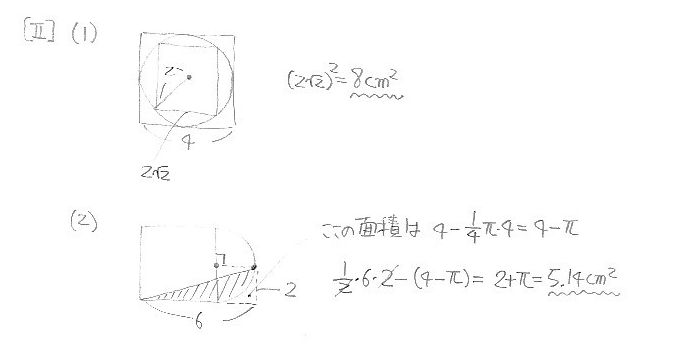 [Ⅱ] (1)
2
(2√2)²=8cm²
4
2√2
(2)
ここの面積は 4-1/4π・4=4-π
2
1/2・6・2-(4-π)=2+π=5.14cm²
6